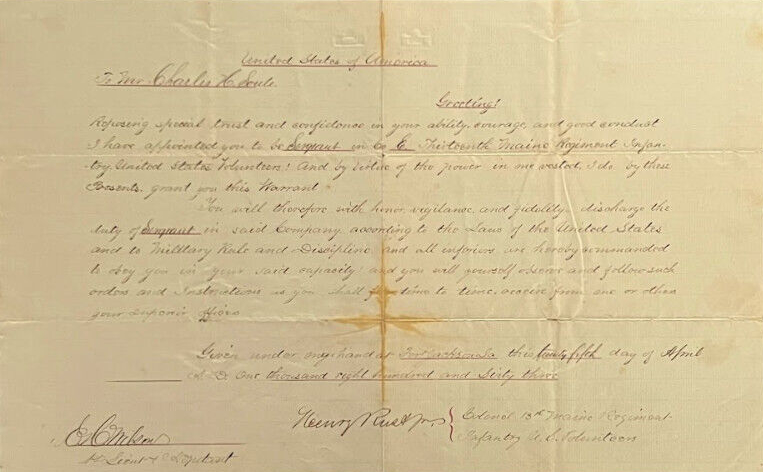 United States of America
To Mr Charles H. Soule.
Greeting!
Reposing special trust and confidence in your ability, courage, and good conduct
I have appointed you to be Sergeant in Co E Thirteenth Maine Regiment Infan-
try, United States Volunteers! And by virtue of the power in me vested, I do by these
Presents, grant you this Warrant
You will therefore with honor, vigilance, and fidelity, discharge the
duty of Sergeant in said Company according to the Laws of the United States
and to Military Rule and Discipline and all inferiors are hereby commanded
to obey you in your said capacity! and you will yourself observe and follow such
orders and Instructions as you shall from time to time, receive from me or other
your superior officers
Given under my hand at Fort Jackson La this twenty fifth day of April
A D one thousand eight hundred and Sixty three
Henry Rust Jr. Colonel 13th Maine Regiment
Infantry U.S. Volunteers
1st Lieut & Adjutant